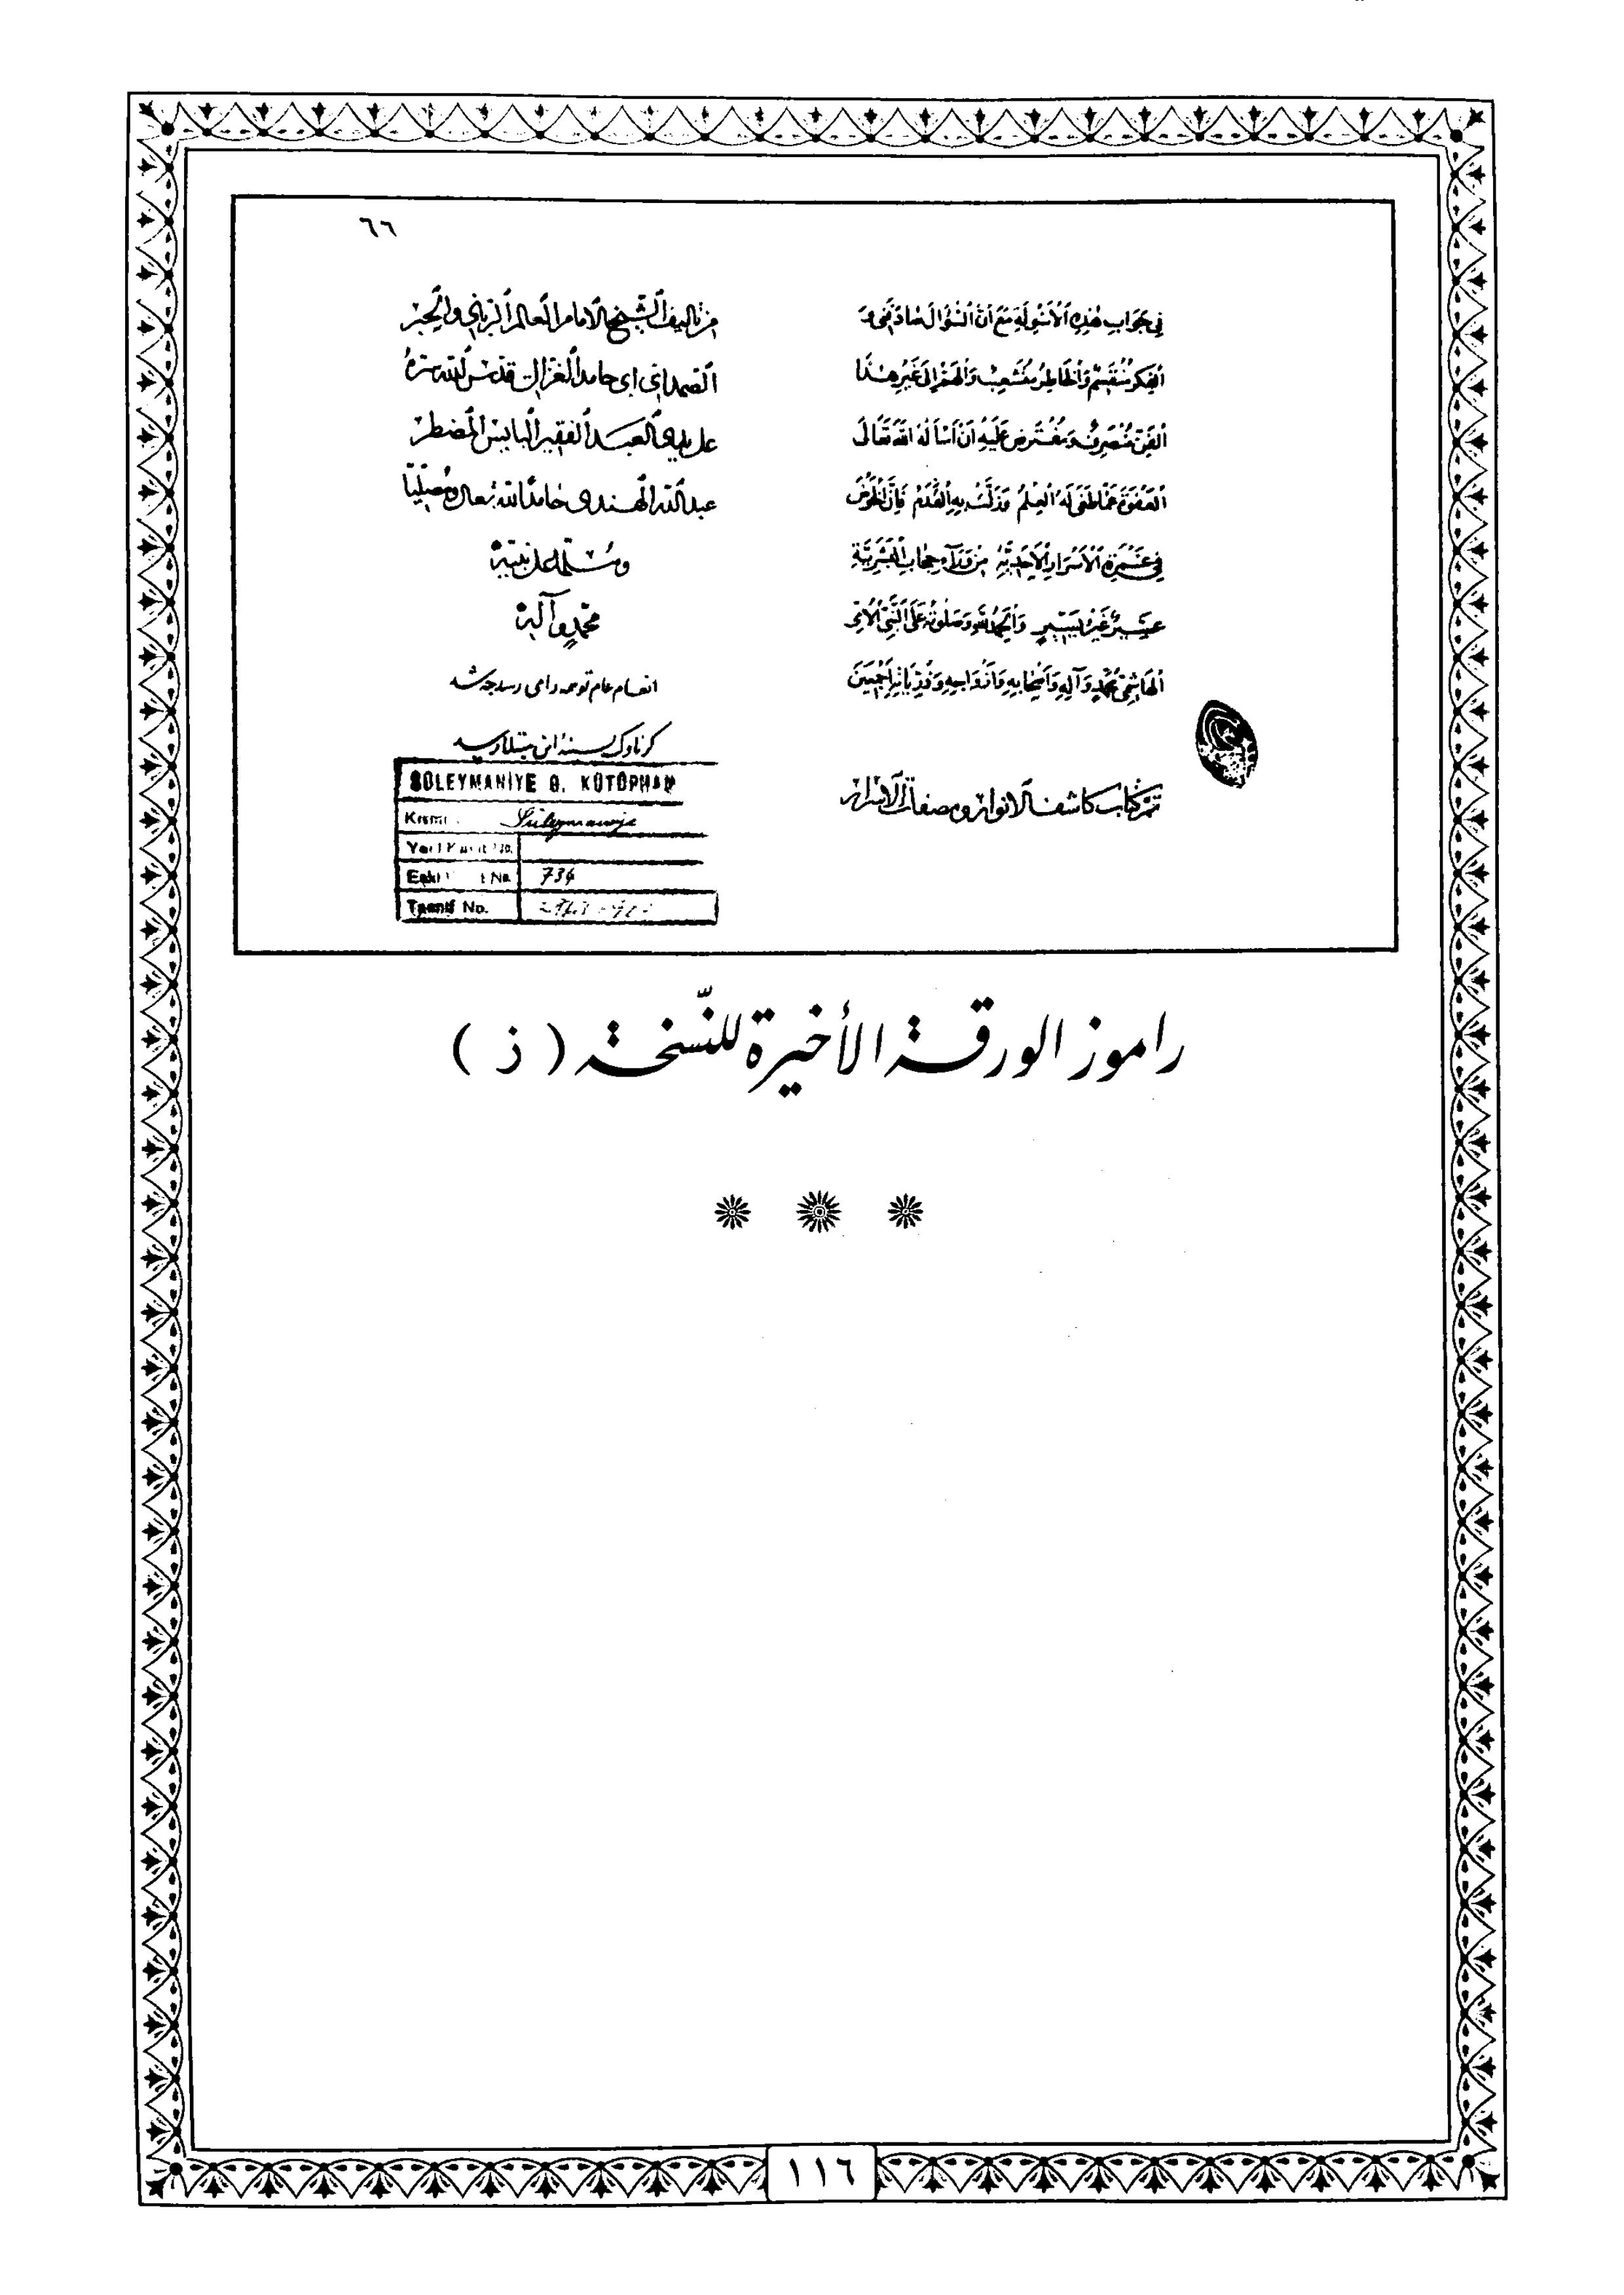 ٦٦
في جواب هذه الأسولة مع أن السؤال صادفني و
الفكر منقسم والخاطر متشعب والهم إلى غير هذا
الفن منصرف ومفترض عليه أن أسأله الله تعالى
العفو عما طغى له العلم وزلت به القدم فإن الخوض
في غمرة الأسرار الإلهية من ورآء حجاب البشرية
عسير غير يسير والحمد لله وصلوته على النبي الأمي
الهاشمي محمد وآله وأصحابه وأزواجه وذرياته أجمعين
تم كتاب كاشف الأنوار ومصفات الأسرار
من تأليف الشيخ الإمام العالم الرباني والحبر
الصمداني أبي حامد الغزالي قدس الله سره
على يدي العبد الفقير البايس المضطر
عبد الله الهندي حامدا لله تعالى ومصليا
ومسلما على نبيه
محمد وآله
انعام عام تو همه را می رسد چه شد
گر ناوک بسینه این مبتلا رسید
SÜLEYMANİYE G. KÜTÜPHANE
Kısmı Süleymaniye
Yeni Kayıt No.
Eski No. 734
Tasnif No.
راموز الورقة الأخيرة للنّسخة ( ز )
١١٦